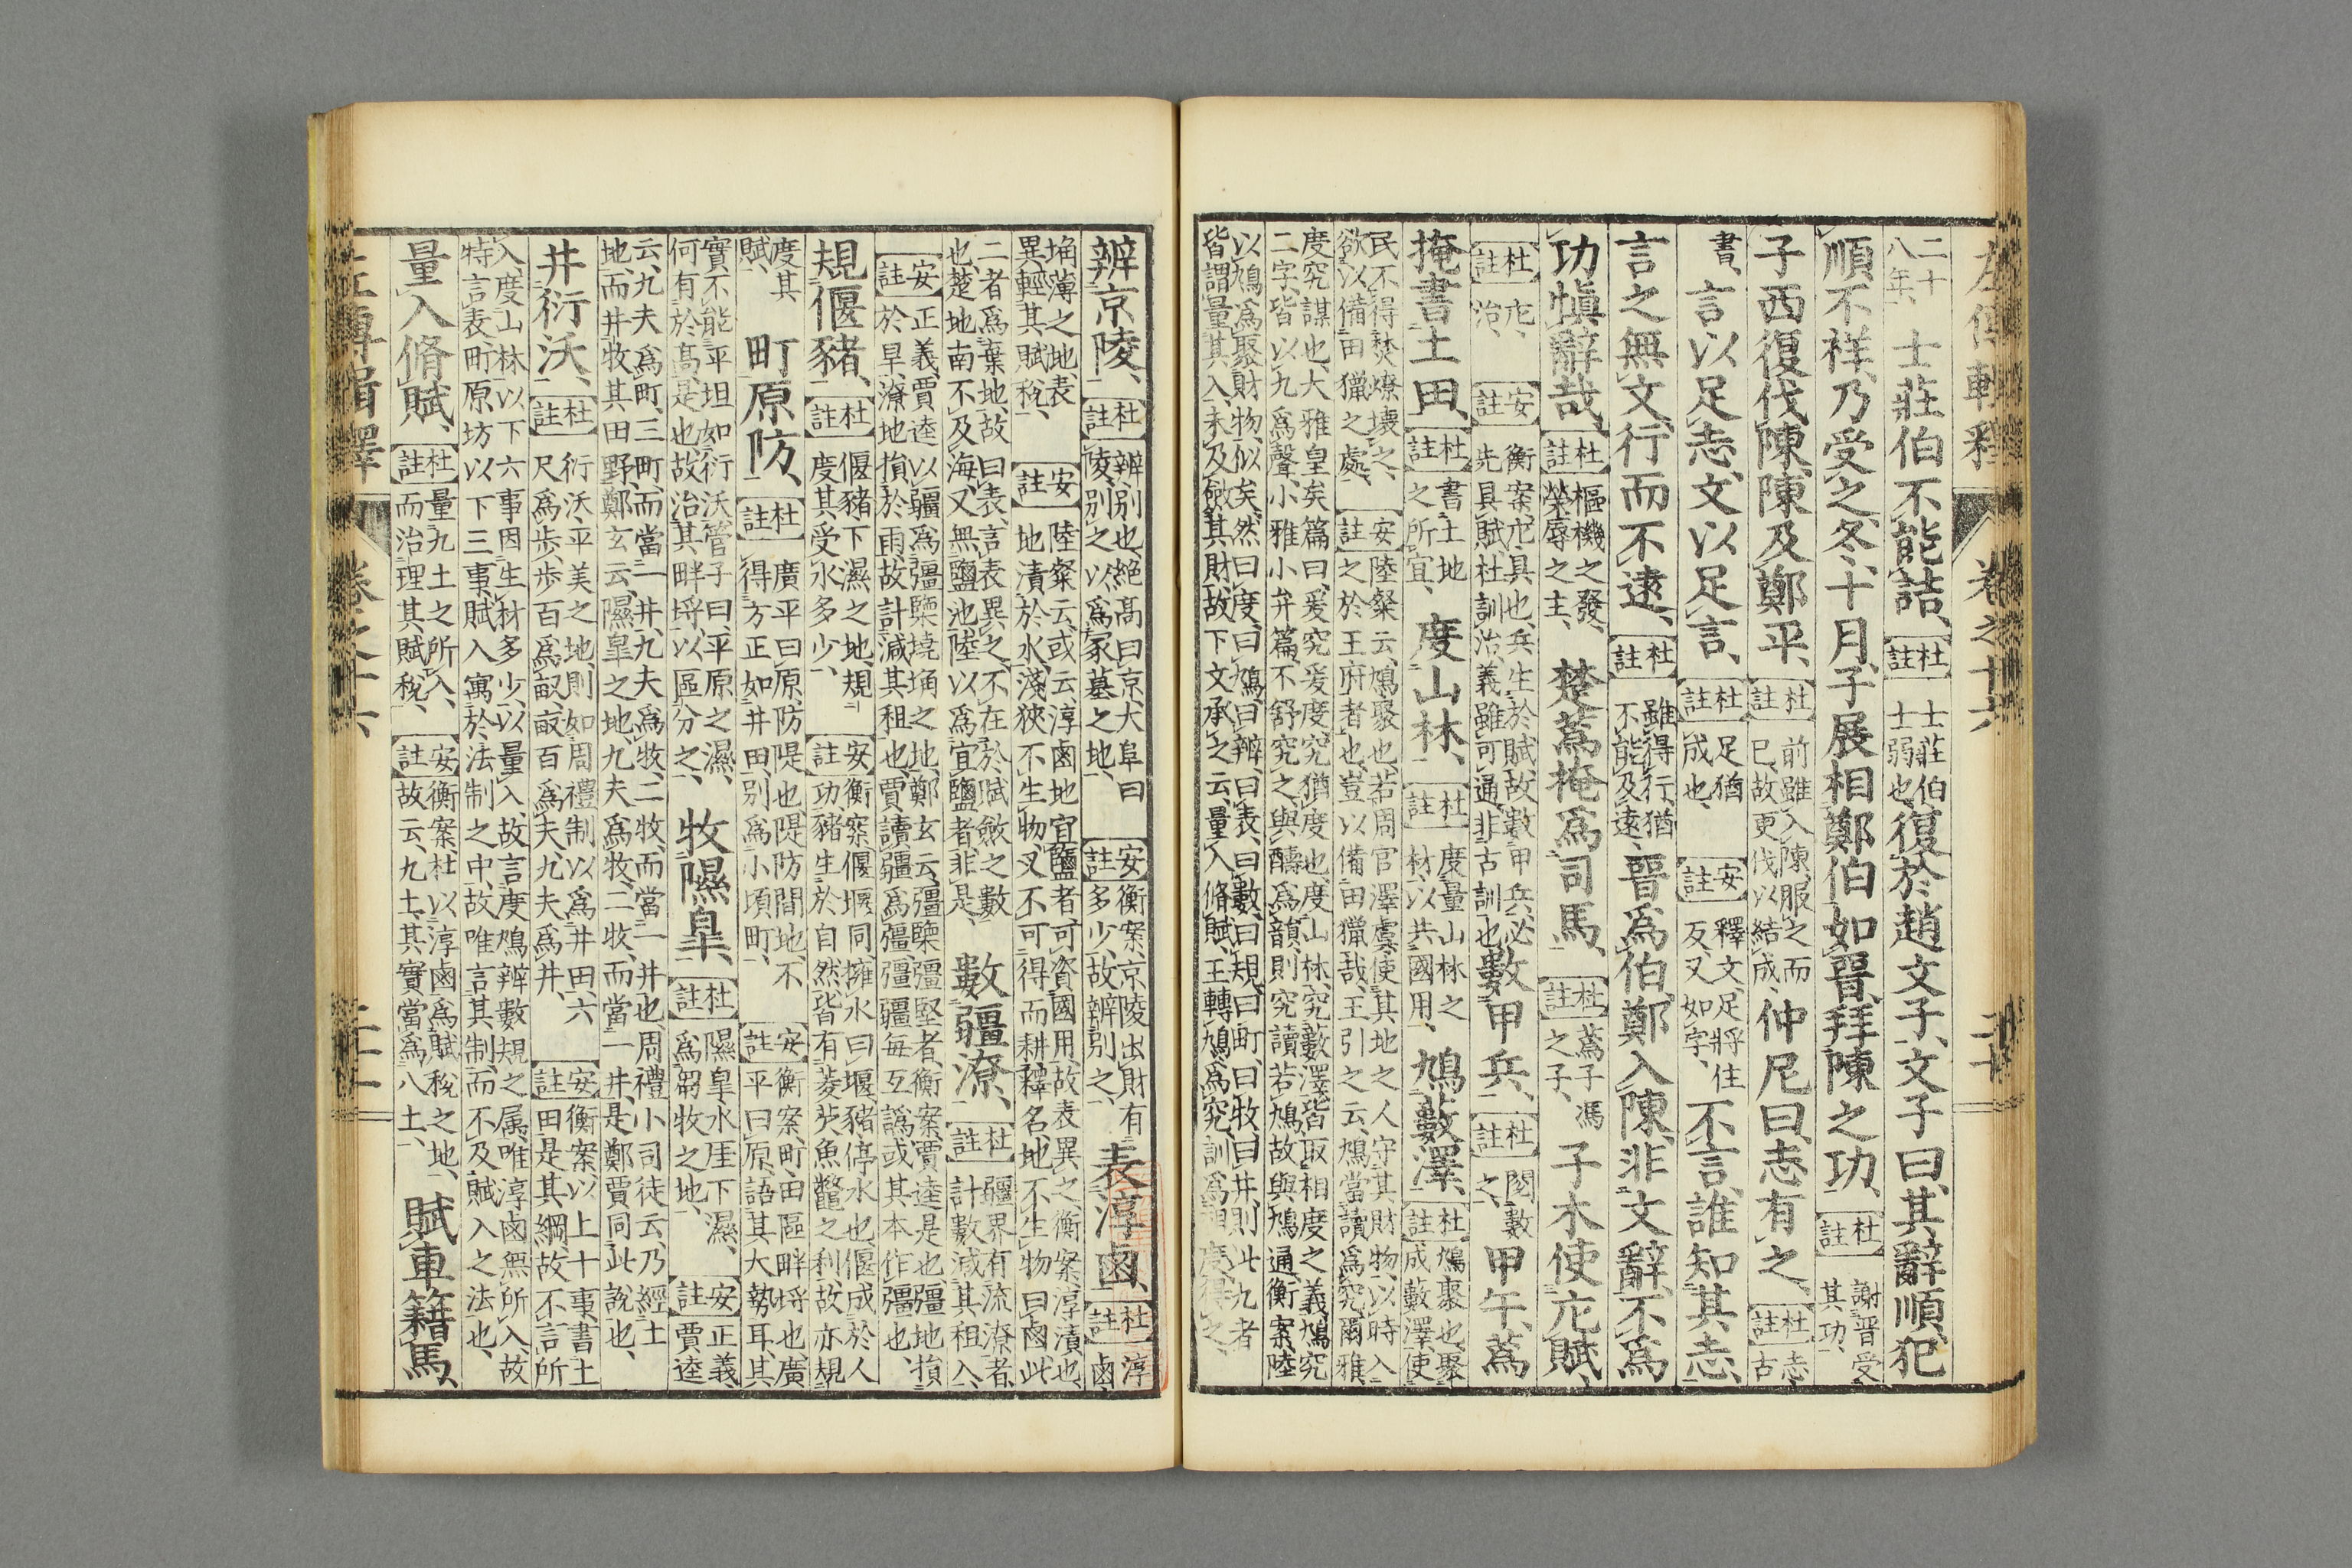 左傳輯釋 卷之十六 二十
二十八年、士莊伯不能詰、杜註士莊伯士弱也、復於趙文子、文子曰、其辭順、犯
順不祥、乃受之、冬、十月、子展相鄭伯如晉、拜陳之功、杜註謝晉受其功、
子西復伐陳、陳及鄭平、杜註前雖入陳、服之而已、故更伐以結成、仲尼曰、志有之、杜註志古
書、言以足志、文以足言、杜註足猶成也、安註釋文、足將住反、又如字、不言、誰知其志、
言之無文、行而不遠、杜註雖得行、猶不能及遠、晉爲伯、鄭入陳、非文辭不爲
功、愼辭哉、杜註樞機之發、榮辱之主、楚蔿掩爲司馬、杜註蔿子馮之子、子木使庀賦、
杜註庀治、安註衡案、庀、具也、兵生於賦、故數甲兵、必先具賦、杜訓治、義雖可通、非古訓也、數甲兵、杜註閱數之、甲午、蔿
掩書土田、杜註書土地之所宜、度山林、杜註度量山林之材、以共國用、鳩藪澤、杜註鳩聚也、聚成藪澤、使
民不得焚燎壞之、欲以備田獵之處、安註陸粲云、鳩、聚也、若周官澤虞、使其地之人守其財物、以時入之於王府者也、豈以備田獵哉、王引之云、鳩當讀爲究、爾雅、
度究謀也、大雅皇矣篇曰、爰究爰度、究猶度也、度山林、究藪澤、皆取相度之義、鳩究二字、皆以九爲聲、小雅小弁篇、不舒究之、與醻爲韻、則究讀若鳩、故與鳩通、衡案、陸
以鳩爲聚財物、似矣、然曰度、曰鳩、曰辨、曰表、曰數、曰規、曰町、曰牧、曰井、則此九者皆謂量其入、未及斂其財、故下文承之云、量入脩賦、王轉鳩爲究、訓爲相度、得之、
辨京陵、杜註辨、別也、絶高曰京、大阜曰陵、別之以爲冢墓之地、安註衡案、京陵出財有多少、故辨別之、表淳鹵、杜註淳鹵、
埆薄之地、表異輕其賦稅、安註陸粲云、或云淳鹵地宜鹽者、可資國用、故表異之、衡案、淳、漬也、地漬於水、淺狹不生物、又不可得而耕、釋名、地不生物曰鹵、此
二者爲棄地、故曰表、言表異之、不在於賦斂之數也、楚地南不及海、又無鹽池、陸以爲宜鹽者、非是、數疆潦、杜註疆界有流潦者、計數減其租入、
安註正義、賈逵以疆爲彊㯺墝埆之地、鄭玄云、彊㯺、彊堅者、衡案、賈逵是也、彊地損於旱、潦地損於雨、故計減其租也、賈讀疆爲彊、彊疆毎互譌、或其本作彊也、
規偃豬、杜註偃豬、下濕之地、規度其受水多少、安註衡案、偃堰同、擁水曰堰、豬、停水也、偃成於人功、豬生於自然、皆有菱芡魚鼈之利、故亦規
度其賦、町原防、杜註廣平曰原、防、隄也、隄防間地、不得方正如井田、別爲小頃町、安註衡案、町、田區畔埒也、廣平曰原、語其大勢耳、其
實不能平坦如衍沃、管子曰、平原之濕、何有於髙、是也、故治其畔埒以區分之、牧隰皐、杜註隰皐、水厓下濕、爲芻牧之地、安註正義、賈逵
云、九夫爲町、三町而當一井、九夫爲牧、二牧而當一井也、周禮小司徒云、乃經土地、而井牧其田野、鄭玄云、隰皐之地、九夫爲牧、二牧而當一井、是鄭賈同此說也、
井衍沃、杜註衍沃、平美之地、則如周禮制以爲井田、六尺爲步、步百爲畝、畝百爲夫、九夫爲井、安註衡案、以上十事、書土田是其綱、故不言所
入、度山林以下六事、因生材多少、以量入、故言度鳩辨數規之屬、唯淳鹵無所入、故特言表、町原坊以下三事、賦入寓於法制之中、故唯言其制、而不及賦入之法也、
量入脩賦、杜註量九土之所入、而治理其賦稅、安註衡案、杜以淳鹵爲賦稅之地、故云九土、其實當爲八土、賦車籍馬、
左傳輯釋 卷之十六